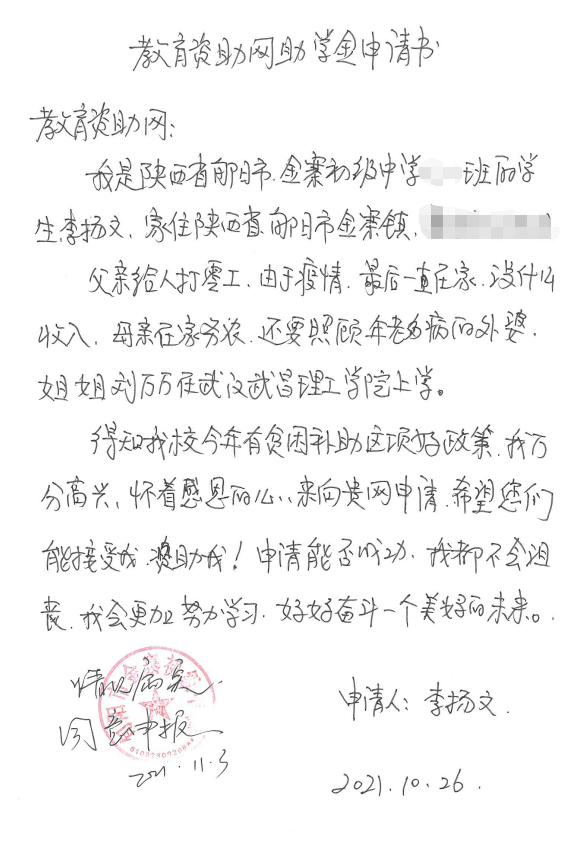 教育资助网助学金申请书
教育资助网：
我是陕西省旬阳市金寨初级中学 班的学
生李扬文，家住陕西省旬阳市金寨镇，
父亲给人打零工，由于疫情，最后一直在家，没什么
收入，母亲在家务农，还要照顾年老多病的外婆，
姐姐刘万万在武汉武昌理工学院上学。
得知我校今年有贫困补助这项好政策，我万
分高兴，怀着感恩的心，来向贵网申请，希望您们
能接受我，资助我！申请能否成功，我都不会沮
丧，我会更加努力学习，好好奋斗一个美好的未来。
情况属实，
同意申报
2021.11.3
申请人：李扬文
2021.10.26.